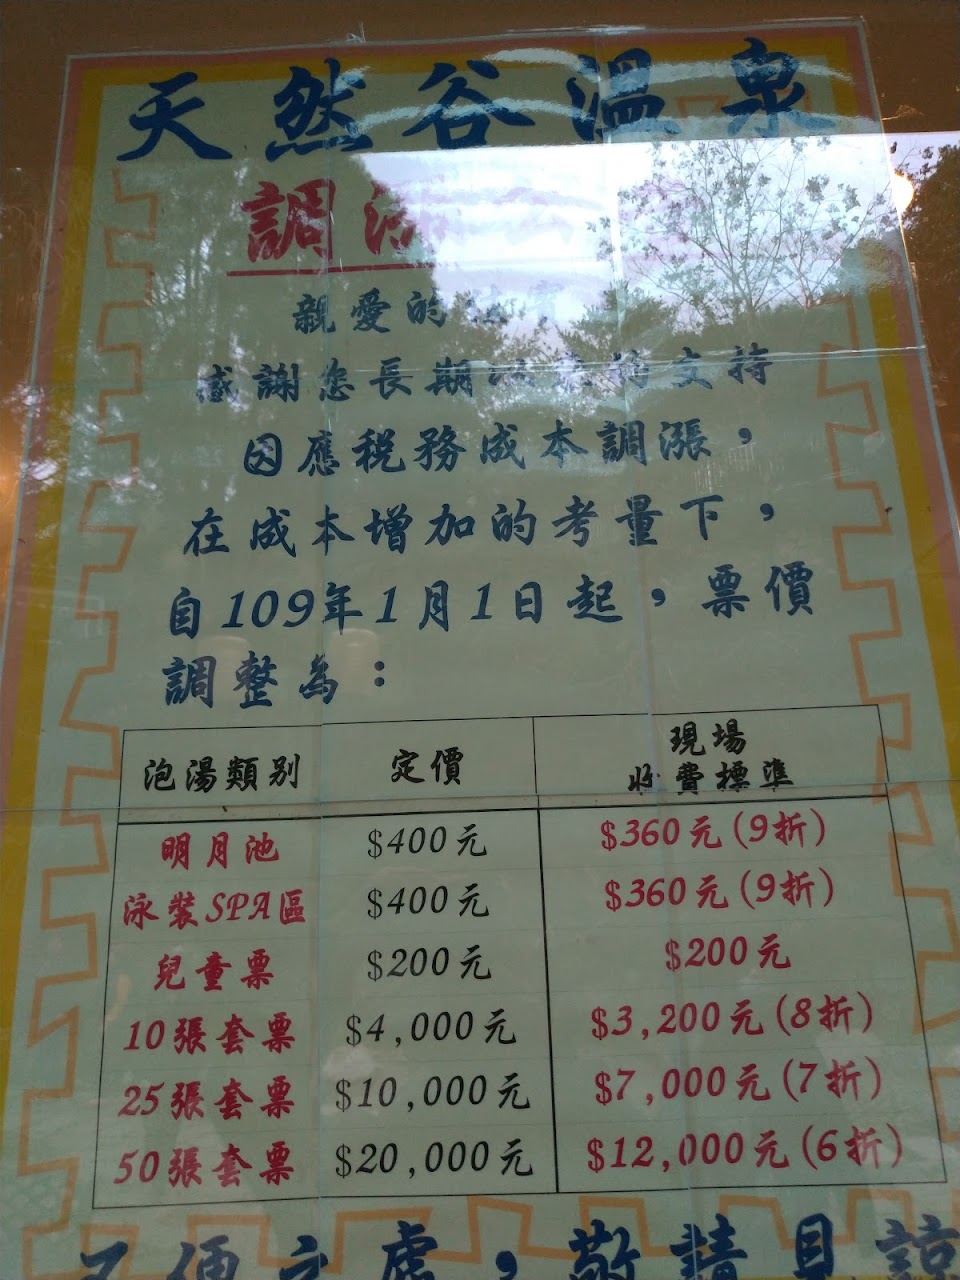 天然谷溫泉
調漲
親愛的
感謝您長期以來的支持
因應稅務成本調漲，
在成本增加的考量下，
自109年1月1日起，票價
調整為：
泡湯類別 定價 現場
收費標準
明月池 $400元 $360元(9折)
泳裝SPA區 $400元 $360元(9折)
兒童票 $200元 $200元
10張套票 $4,000元 $3,200元(8折)
25張套票 $10,000元 $7,000元(7折)
50張套票 $20,000元 $12,000元(6折)
不便之處，敬請見諒